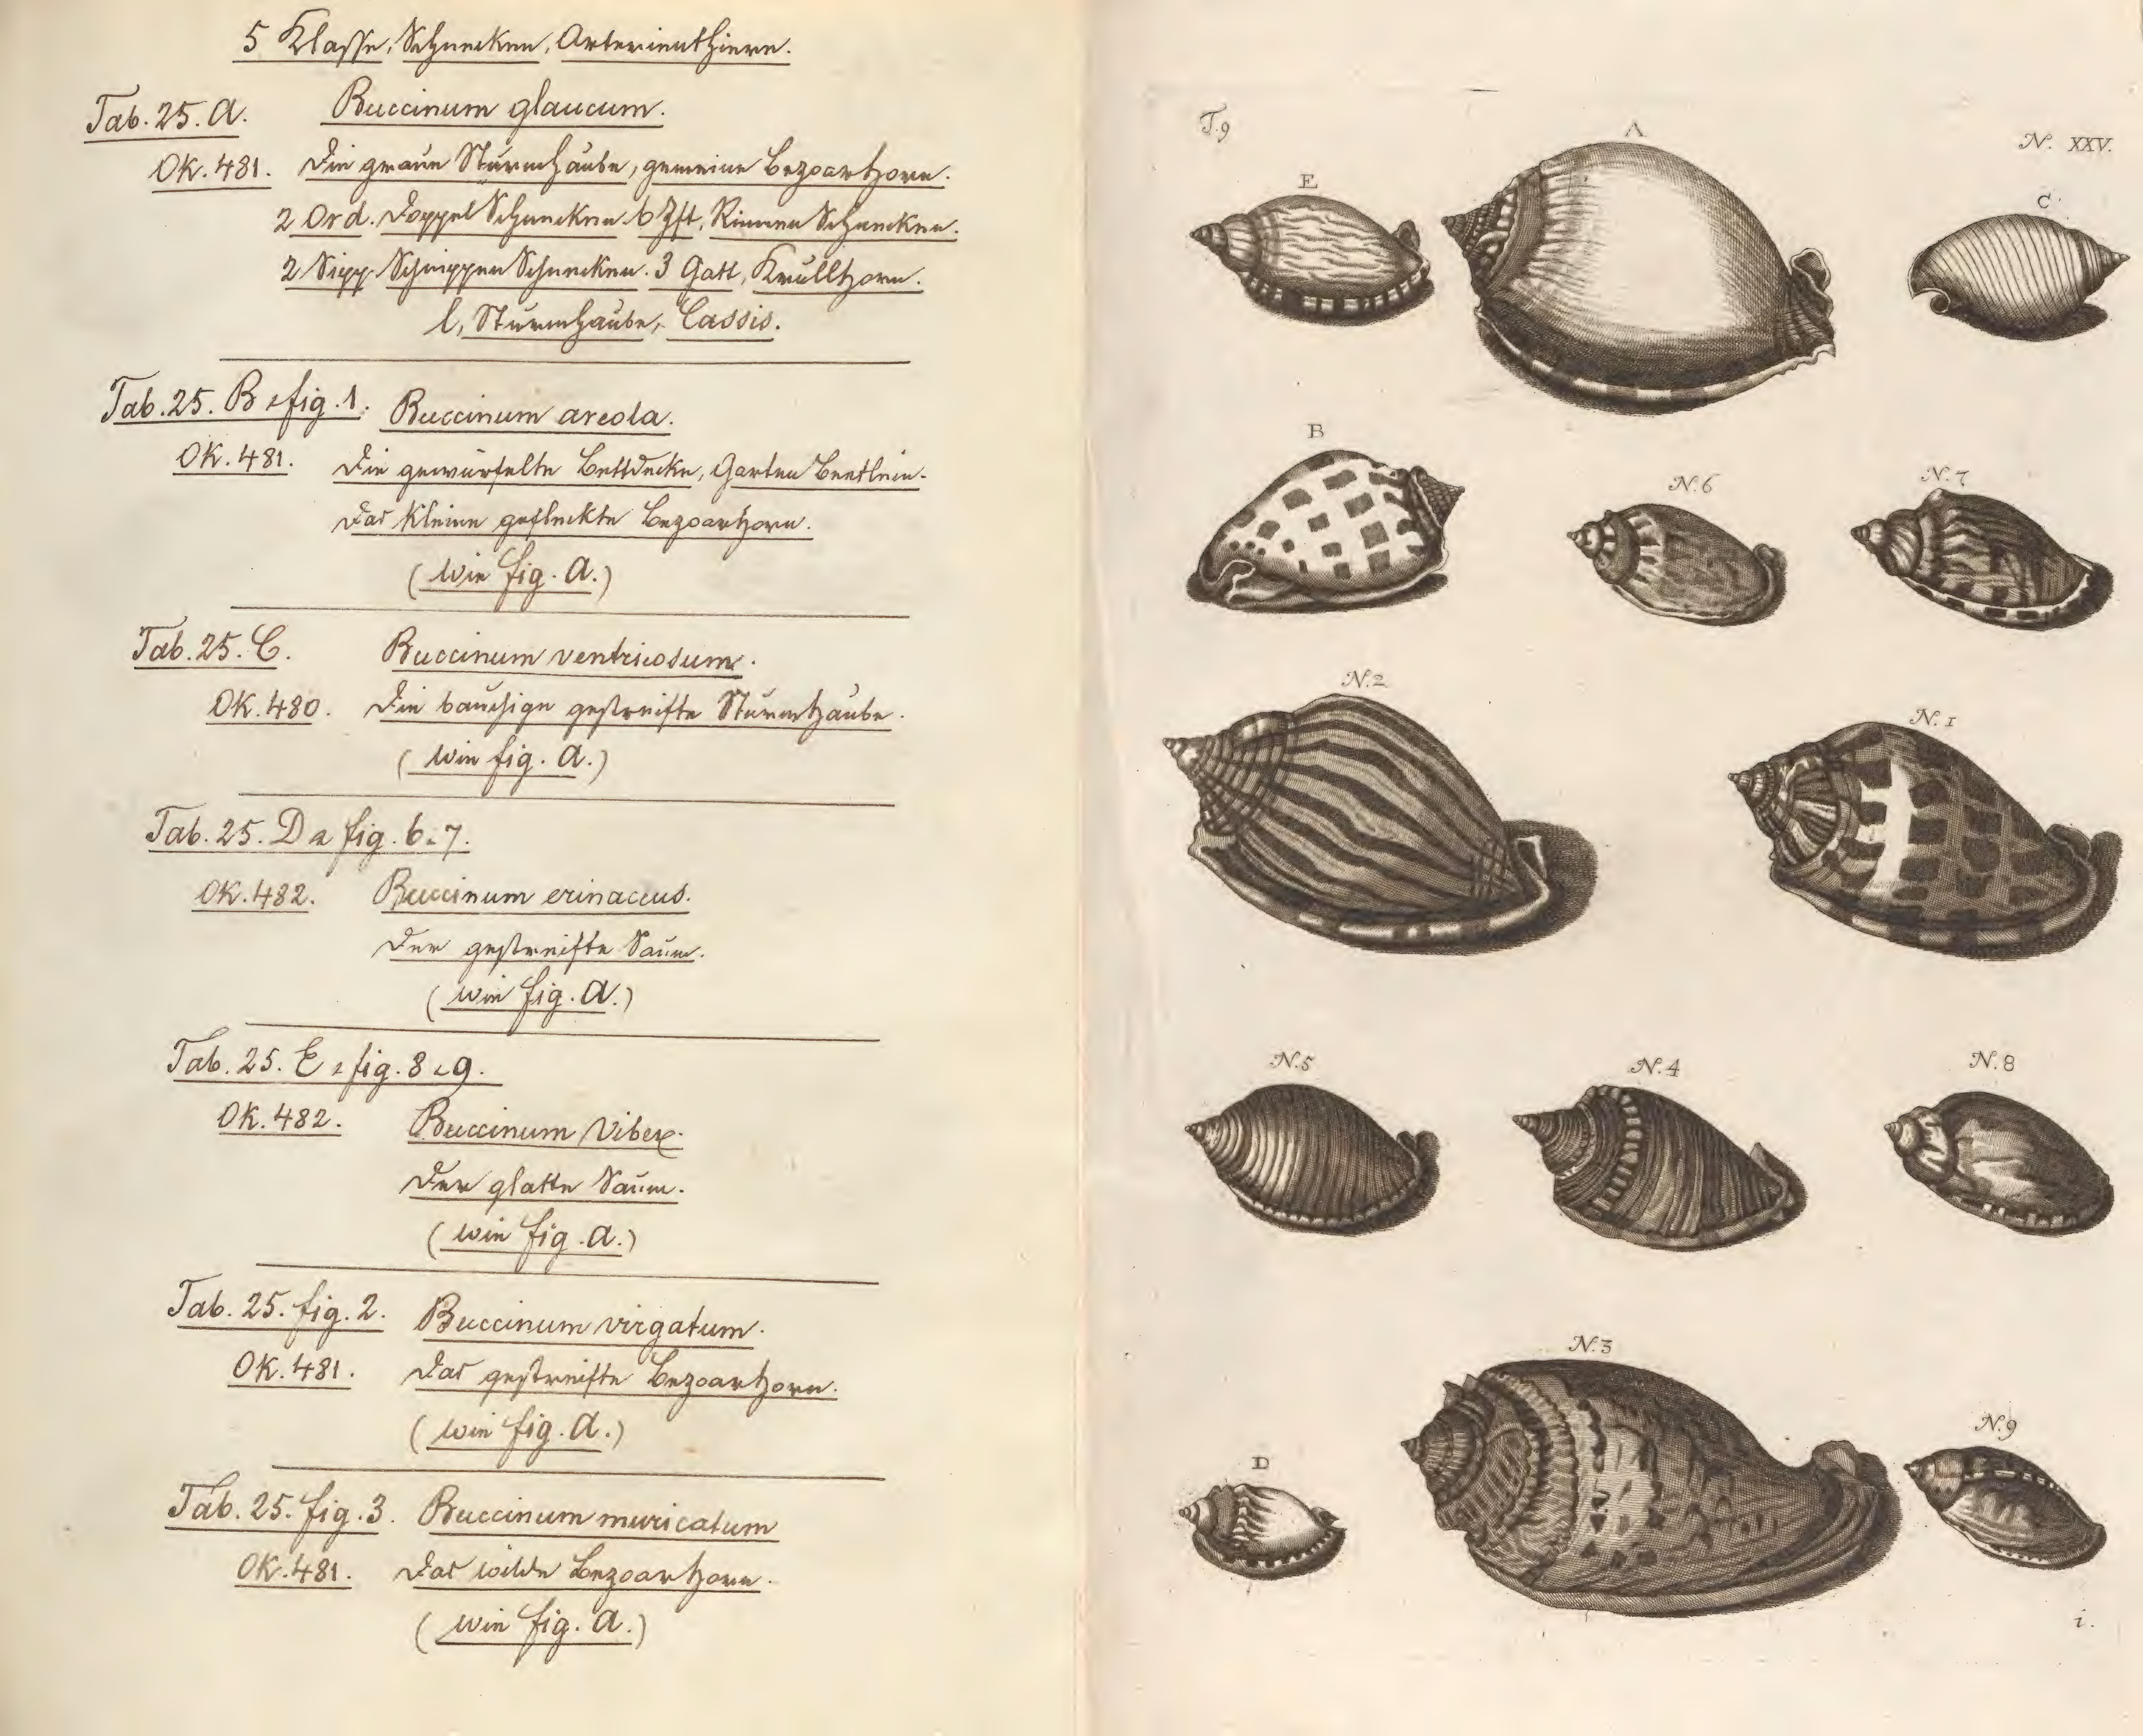 5 Klasse, Schnecken, Arterienthiere.
Tab. 25. A. Buccinum glaucum.
OK. 481. Die graue Sturmhaube, gemeine Bezoarhorn.
2 Ord. Doppel Schnecken. 6 Zft, Rinnen Schnecken.
2 Sipp. Schnippen Schnecken. 3 Gatt, Krullhorn.
l, Sturmhaube, Cassis.
Tab. 25. B & fig. 1. Buccinum areola.
OK. 481. Die gewürfelte Bettdecke, Garten Beetlein.
Das kleine gefleckte Bezoarhorn.
(wie fig. A.)
Tab. 25. C. Buccinum ventricosum.
OK. 480. Die bauchige gestreifte Sturmhaube.
(wie fig. A.)
Tab. 25. D & fig. 6 & 7.
OK. 482. Buccinum erinaceus.
Der gestreifte Saum.
(wie fig. A.)
Tab. 25. E & fig. 8 & 9.
OK. 482. Buccinum Vibex.
Der glatte Saum.
(wie fig. A.)
Tab. 25. fig. 2. Buccinum virgatum.
OK. 481. Das gestreifte Bezoarhorn.
(wie fig. A.)
Tab. 25. fig. 3. Buccinum muricatum
OK. 481. Das wilde Bezoarhorn.
(wie fig. A.)
T. 9
A
N. XXV.
E
C
B
N. 6
N. 7
N. 2
N. 1
N. 5
N. 4
N. 8
N. 3
D
N. 9
i.